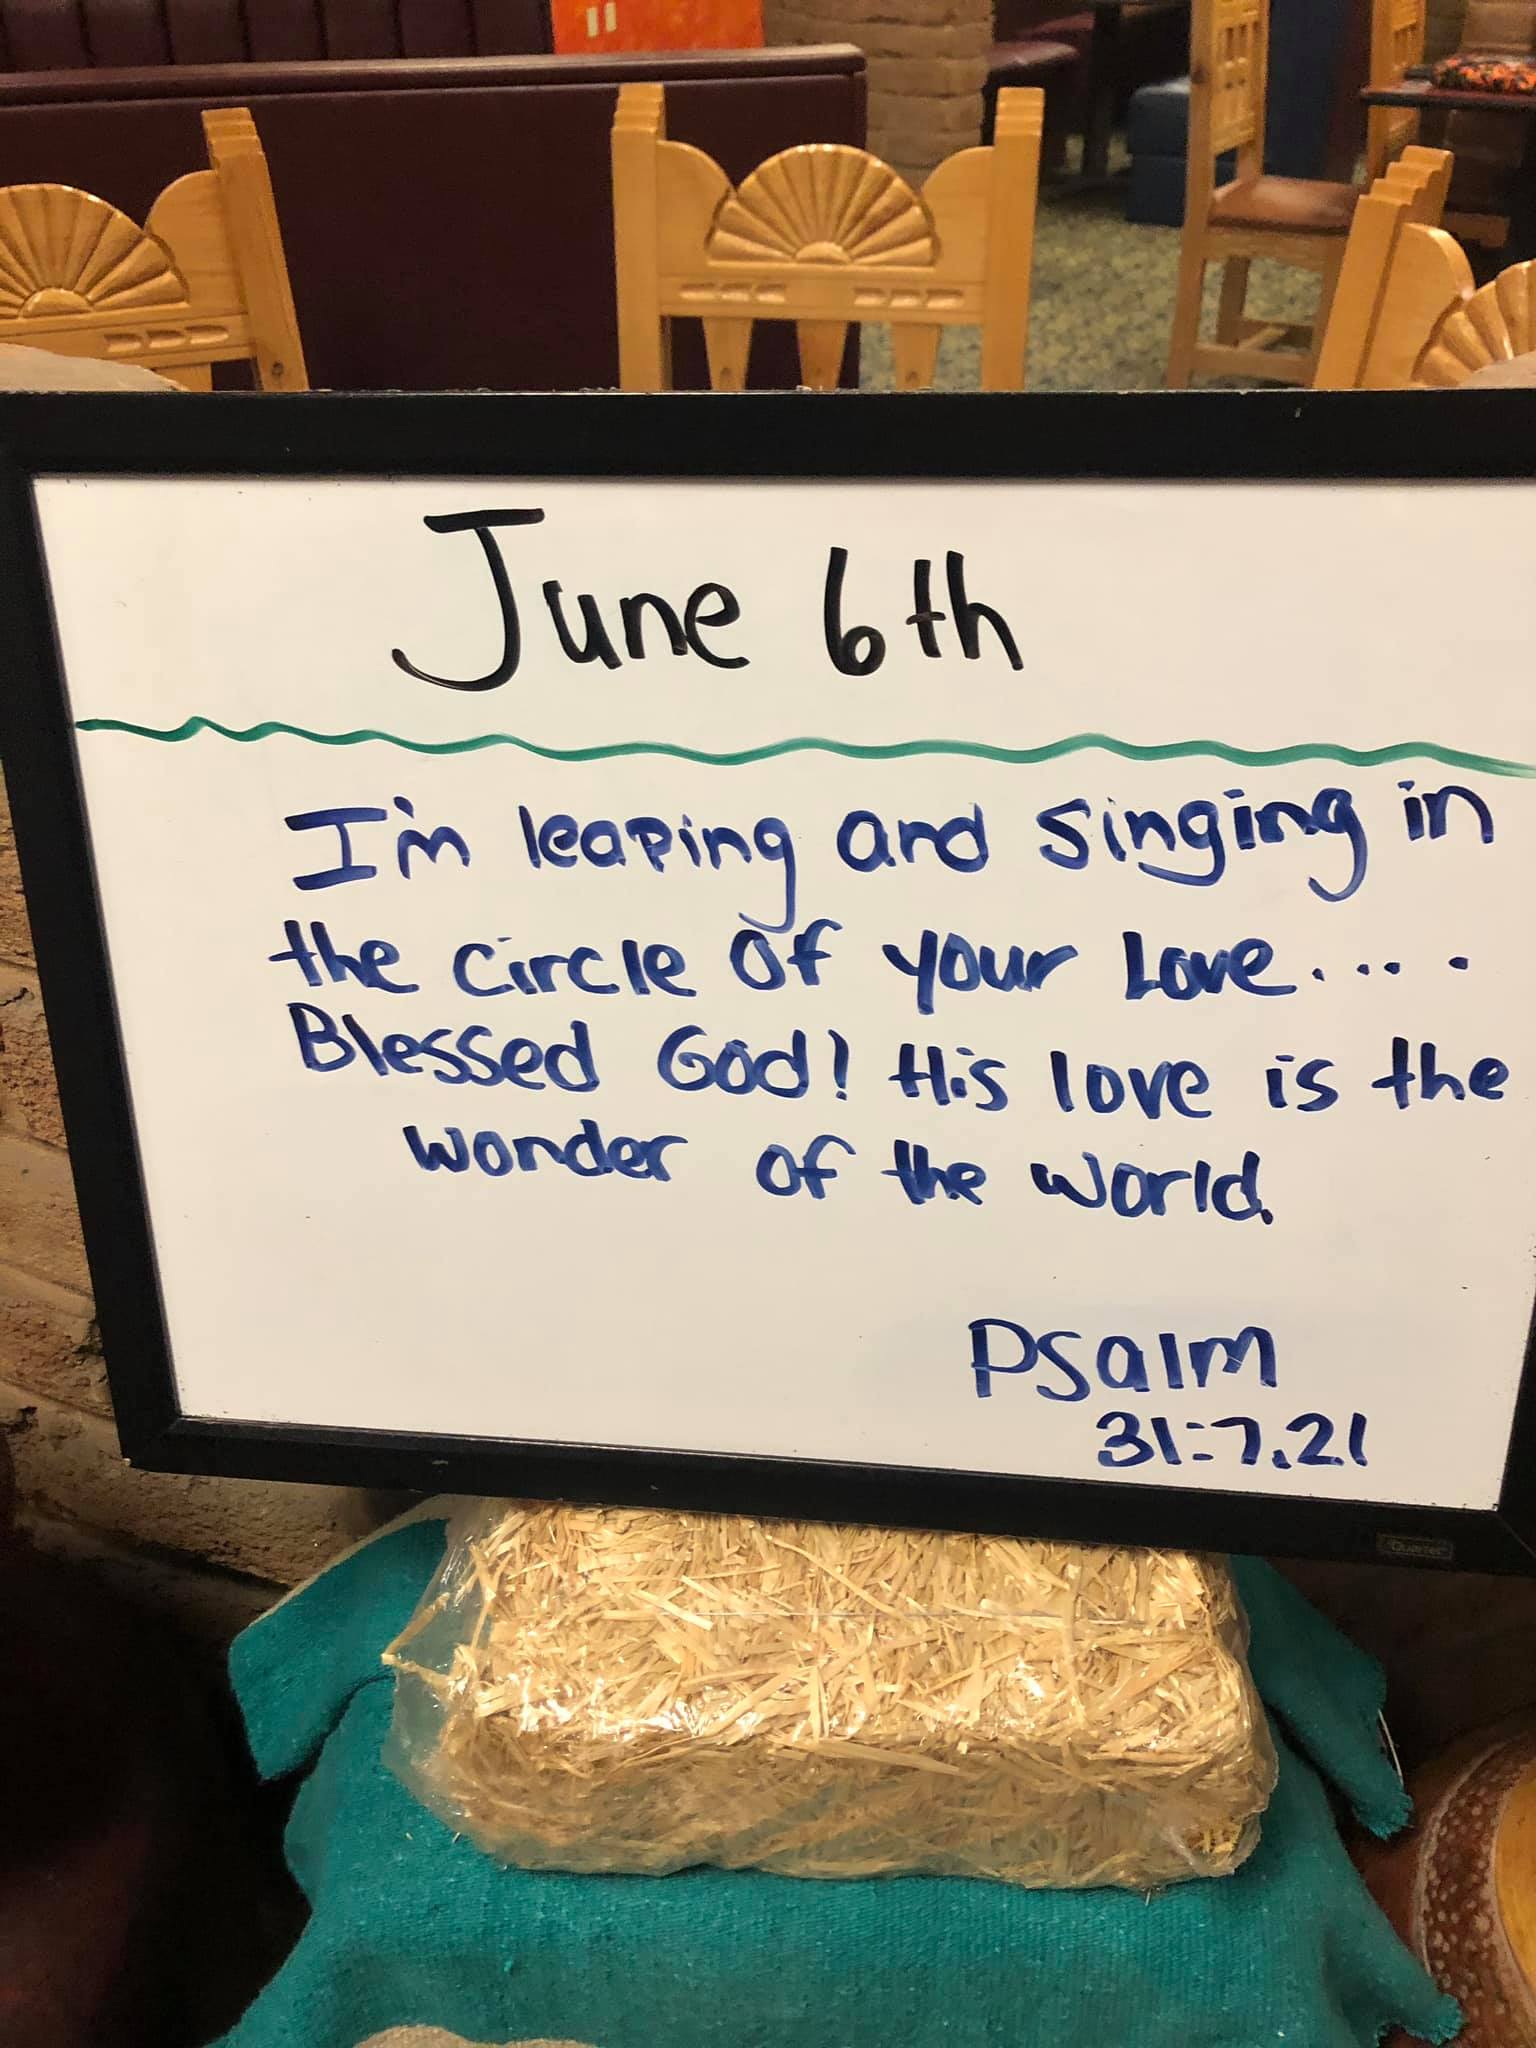 June 6th
I'm leaping and singing in
the circle of your Love....
Blessed God! His love is the
wonder of the world.
Psalm
31:7.21
Quartet